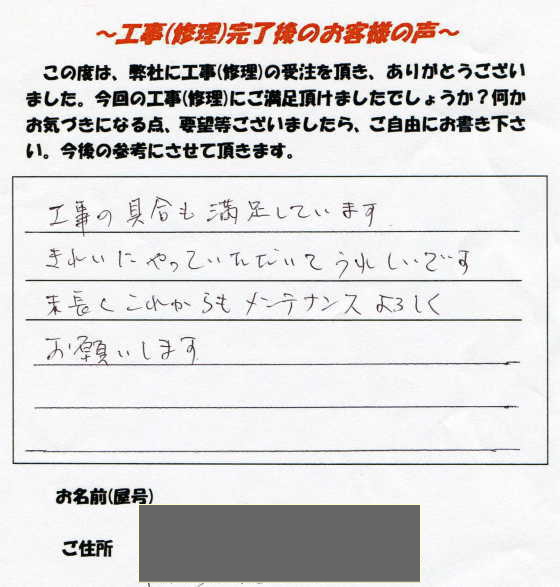 ～工事(修理)完了後のお客様の声～
この度は、弊社に工事(修理)の受注を頂き、ありがとうござい
ました。今回の工事(修理)にご満足頂けましたでしょうか？何か
お気づきになる点、要望等ございましたら、ご自由にお書き下さ
い。今後の参考にさせて頂きます。
工事の具合も満足しています
きれいにやっていただいてうれしいです
末長くこれからもメンテナンスよろしく
お願いします
お名前(屋号)
ご住所